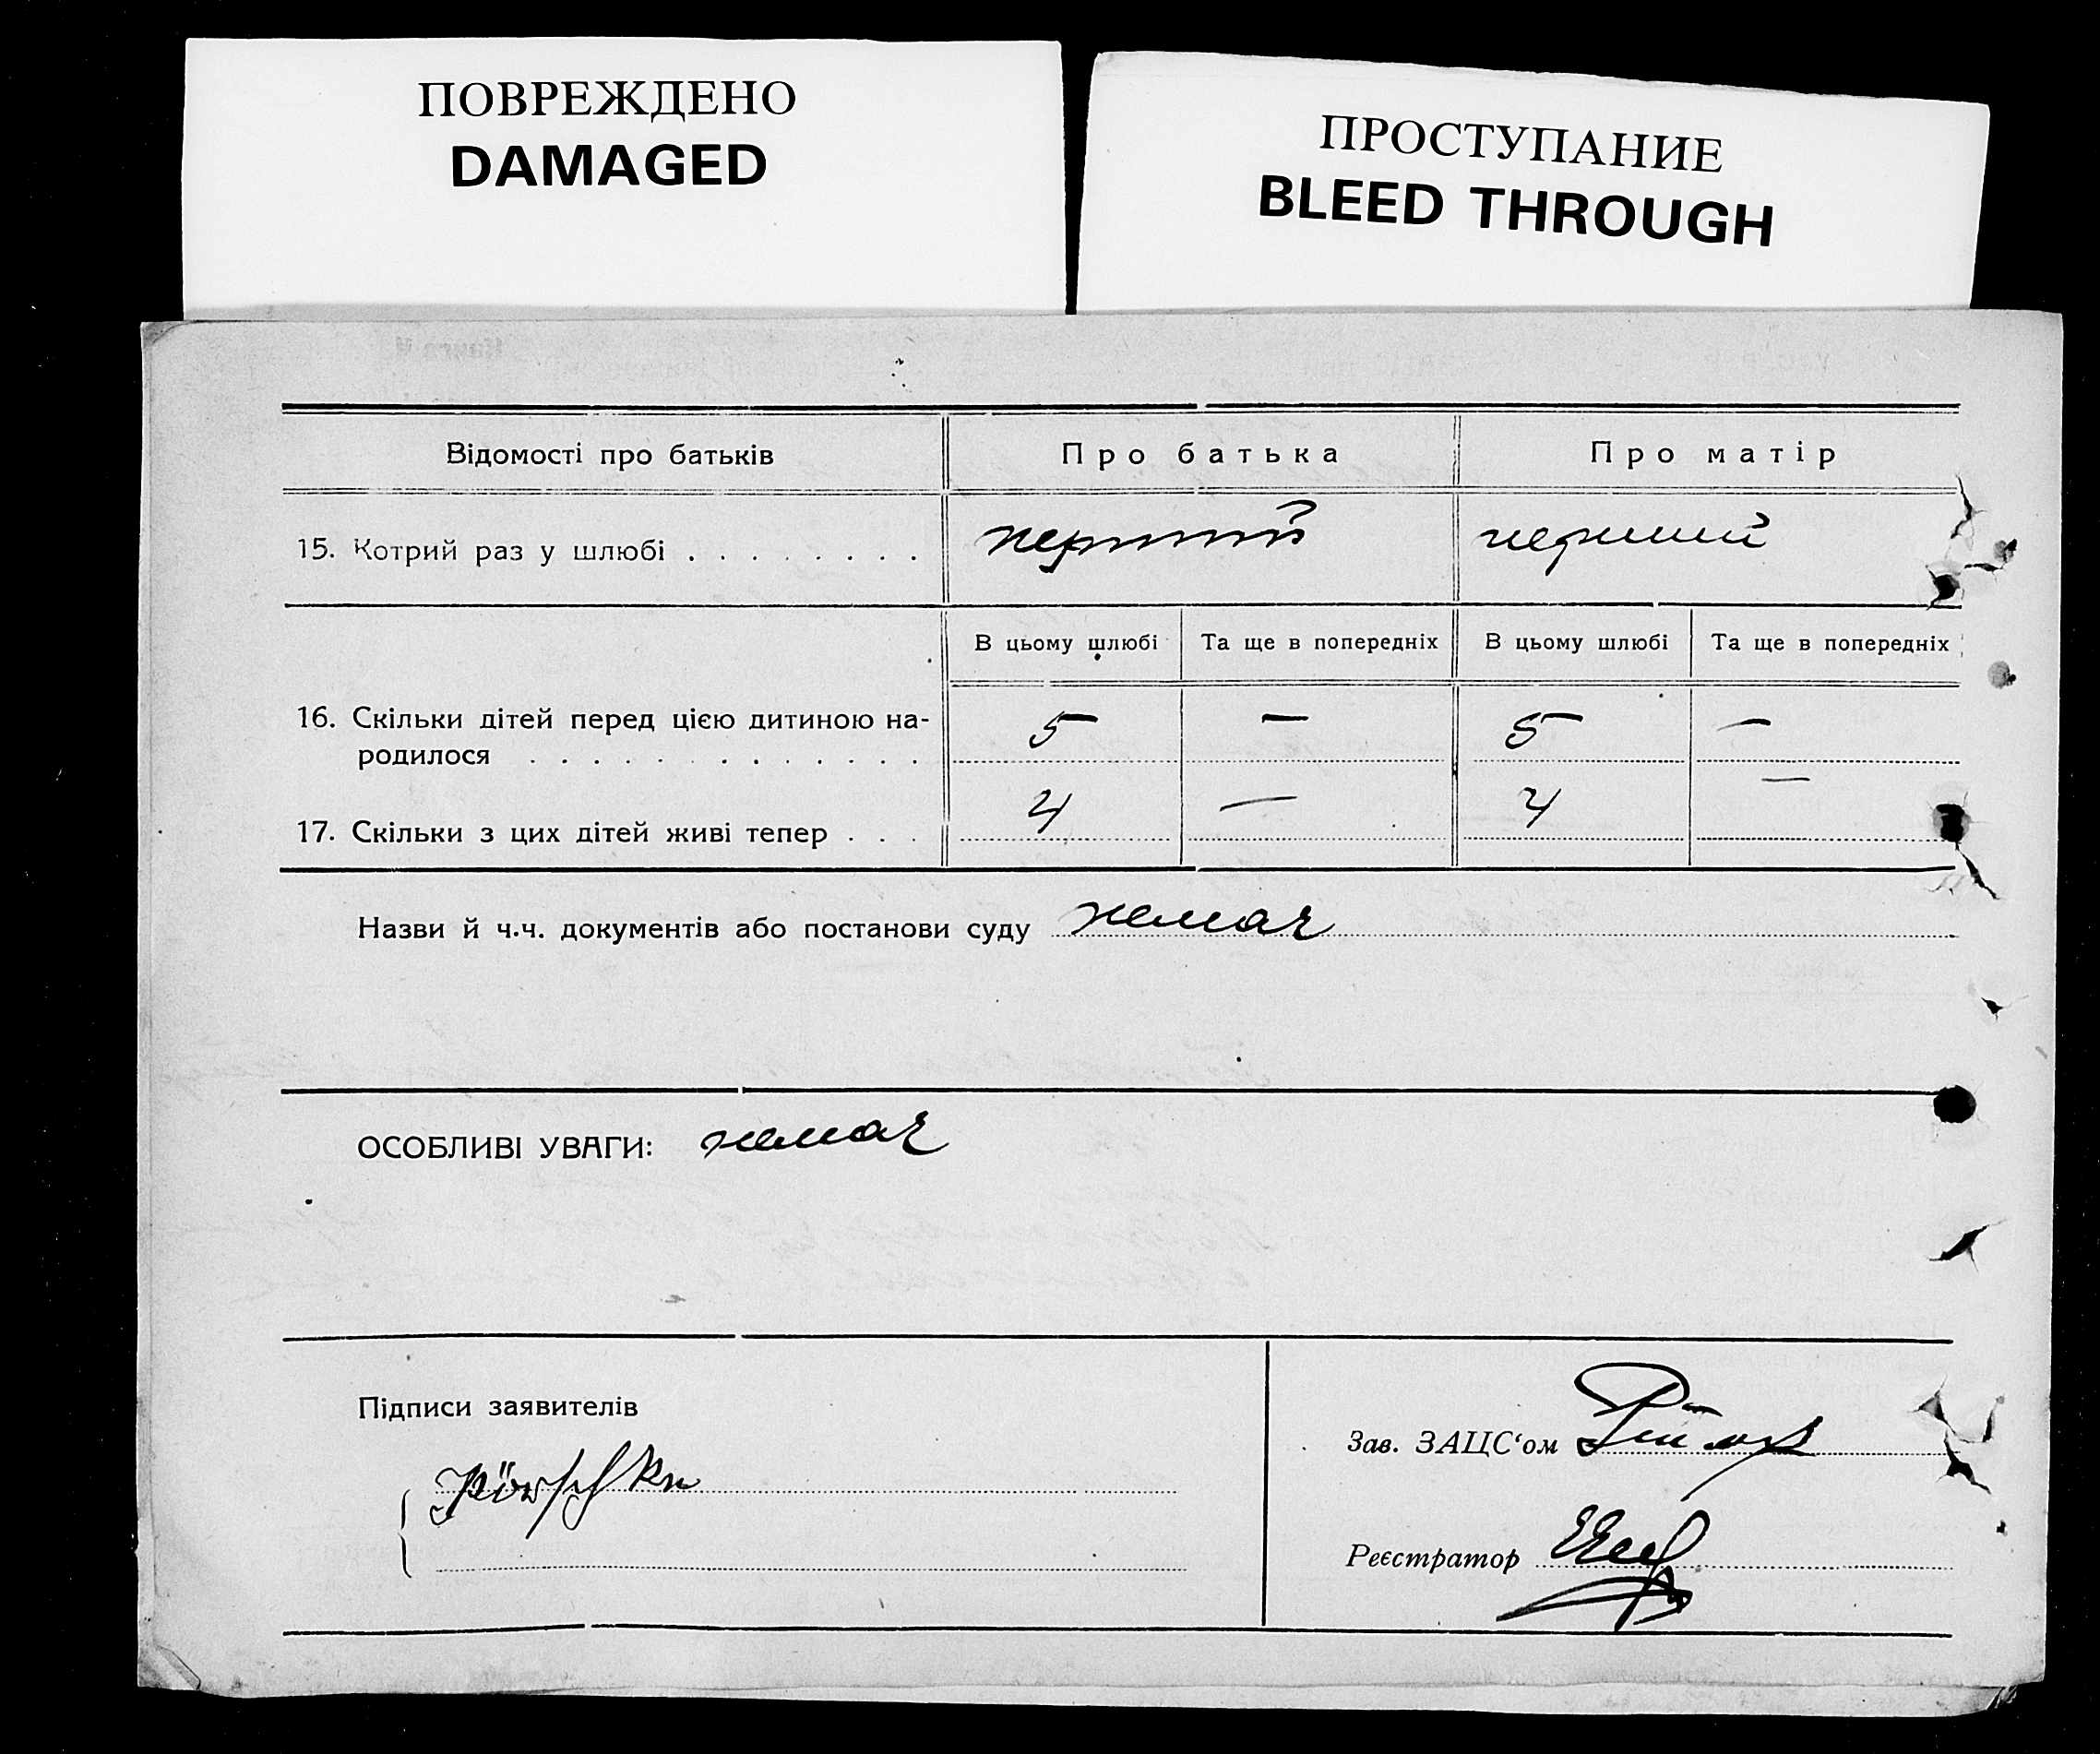 ПОВРЕЖДЕНО
DAMAGED
ПРОСТУПАНИЕ
BLEED THROUGH
Відомості про батьків Про батька Про матір
15. Котрий раз у шлюбі . . . . . . . . перший перший
В цьому шлюбі Та ще в попередніх В цьому шлюбі Та ще в попередніх
16. Скільки дітей перед цією дитиною на-
родилося . . . . . . . . . . . . . 5 — 5 —
17. Скільки з цих дітей живі тепер . . . 4 — 4 —
Назви й ч.ч. документів або постанови суду немає
ОСОБЛИВІ УВАГИ: немає
Підписи заявителів
Зав. ЗАЦС‘ом
Реєстратор